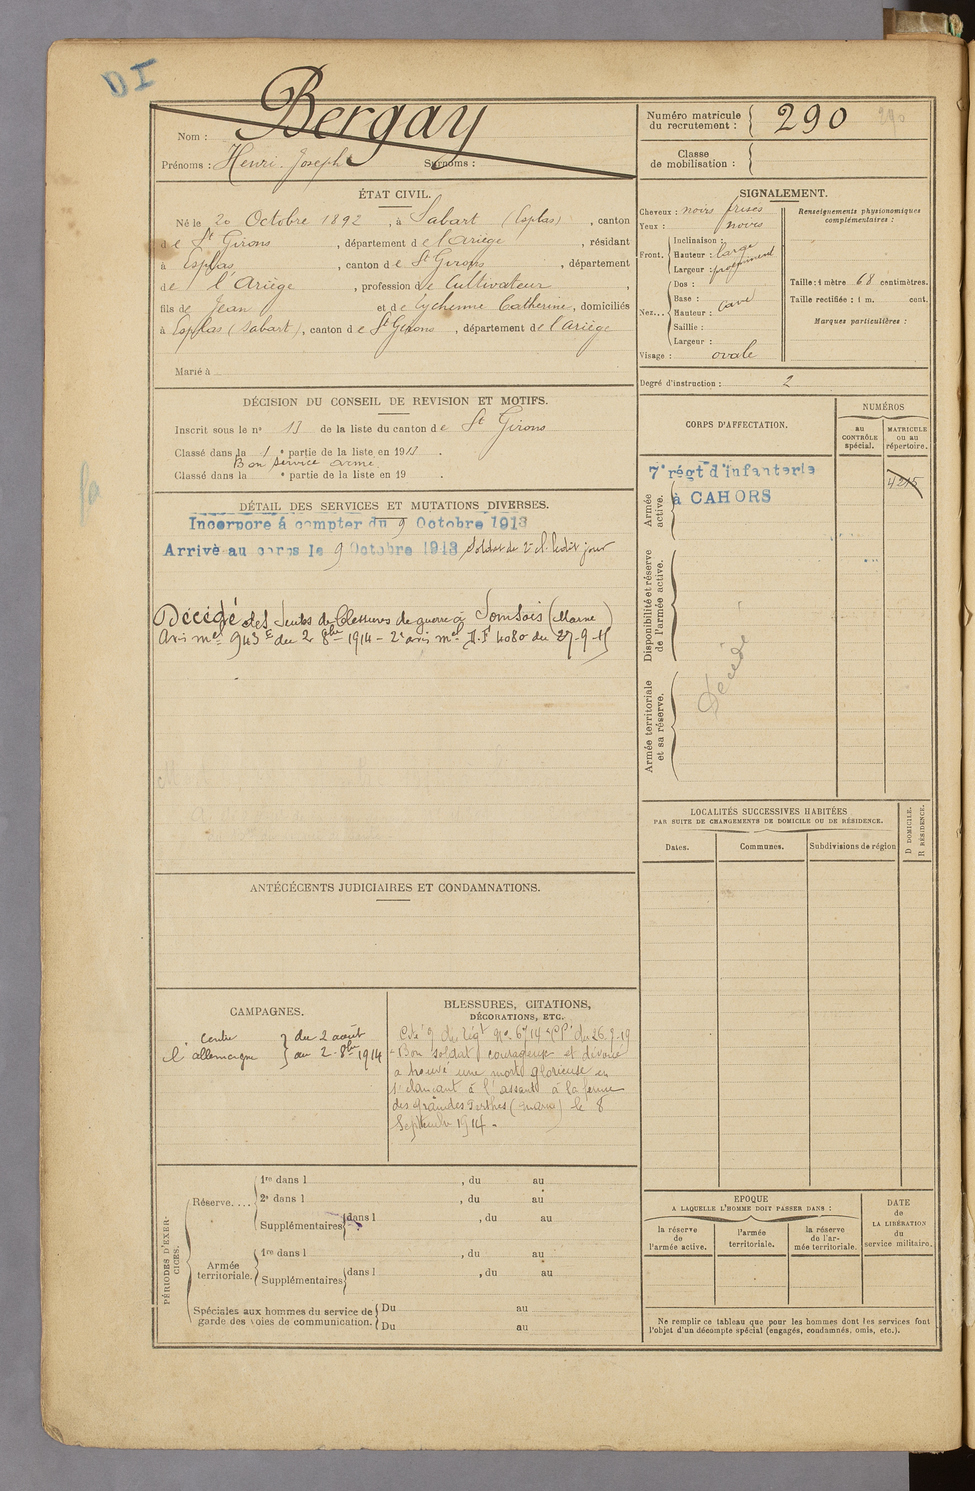 DI
Bergay
Nom :
Prénoms : Henri Joseph Surnoms :
Numéro matricule du recrutement : 290
Classe de mobilisation :
ÉTAT CIVIL.
Né le 20 Octobre 1892, à Sabart (Esplas), canton
de St Girons, département de l'Ariège, résidant
à Esplas, canton de St Girons, département
de l'Ariège, profession de Cultivateur,
fils de Jean et de Eychenne Catherine, domiciliés
à Esplas (Sabart), canton de St Girons, département de l'Ariège
Marié à
SIGNALEMENT.
Cheveux : noirs frisés
Yeux : noirs
Front.
Inclinaison :
Hauteur : large
Largeur : proéminent
Nez...
Dos :
Base :
Hauteur : cave
Saillie :
Largeur :
Visage : ovale
Renseignements physionomiques complémentaires :
Taille : 1 mètre 68 centimètres.
Taille rectifiée : 1 m. cent.
Marques particulières :
Degré d'instruction : 2
DÉCISION DU CONSEIL DE REVISION ET MOTIFS.
Inscrit sous le n° 13 de la liste du canton de St Girons
Classé dans la 1e partie de la liste en 1913.
Bon service armé
Classé dans la e partie de la liste en 19 .
DÉTAIL DES SERVICES ET MUTATIONS DIVERSES.
Incorporé à compter du 9 Octobre 1913
Arrivé au corps le 9 Octobre 1913 soldat de 2e cl. ledit jour
Décédé des suites de blessures de guerre à Somsois (Marne)
Avis mel 943 E du 2 8bre 1914 - 2e avis mel 4080 du 27-9-15
CORPS D'AFFECTATION.
NUMÉROS
au CONTRÔLE spécial.
MATRICULE ou au répertoire.
Armée active.
7e régt d'infanterie
à CAHORS
4215
Disponibilité et réserve de l'armée active.
Décédé
Armée territoriale et sa réserve.
LOCALITÉS SUCCESSIVES HABITÉES
PAR SUITE DE CHANGEMENTS DE DOMICILE OU DE RÉSIDENCE.
Dates.
Communes.
Subdivisions de région
D DOMICILE.
R RÉSIDENCE.
ANTÉCÉDENTS JUDICIAIRES ET CONDAMNATIONS.
CAMPAGNES.
contre l'allemagne } du 2 août
au 2 8bre 1914
BLESSURES, CITATIONS,
DÉCORATIONS, ETC.
Cité O. du Régt No 6714
- Bon soldat courageux et dévoué
a trouvé une mort glorieuse en
s'élançant à l'assaut à la ferme
des grandes Perthes (marne) le 8
Septembre 1914 -
PÉRIODES D'EXERCICES.
Réserve....
1re dans l , du au
2e dans l , du au
Supplémentaires dans l , du au
Armée territoriale.
1re dans l , du au
Supplémentaires dans l , du au
Spéciales aux hommes du service de garde des voies de communication.
Du au
Du au
EPOQUE
A LAQUELLE L'HOMME DOIT PASSER DANS :
la réserve de l'armée active.
l'armée territoriale.
la réserve de l'armée territoriale.
DATE de LA LIBÉRATION du service militaire.
Ne remplir ce tableau que pour les hommes dont les services font
l'objet d'un décompte spécial (engagés, condamnés, omis, etc.).